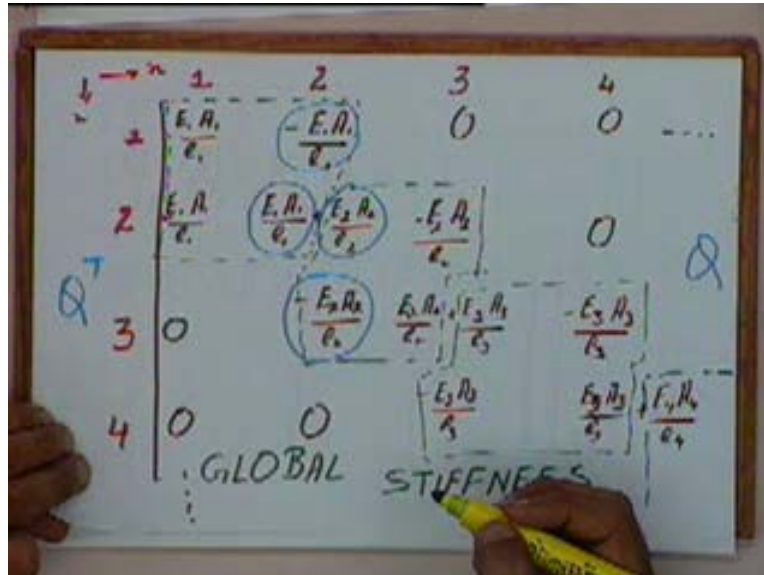 1 2 3 4
1 E₁A₁/ℓ₁ -E₁A₁/ℓ₁ 0 0 ----
2 E₁A₁/ℓ₁ E₁A₁/ℓ₁ + E₂A₂/ℓ₂ -E₂A₂/ℓ₂ 0
Qᵀ Q
3 0 -E₂A₂/ℓ₂ E₂A₂/ℓ₂ + E₃A₃/ℓ₃ -E₃A₃/ℓ₃
4 0 0 -E₃A₃/ℓ₃ E₃A₃/ℓ₃ + E₄A₄/ℓ₄
GLOBAL STIFFNESS